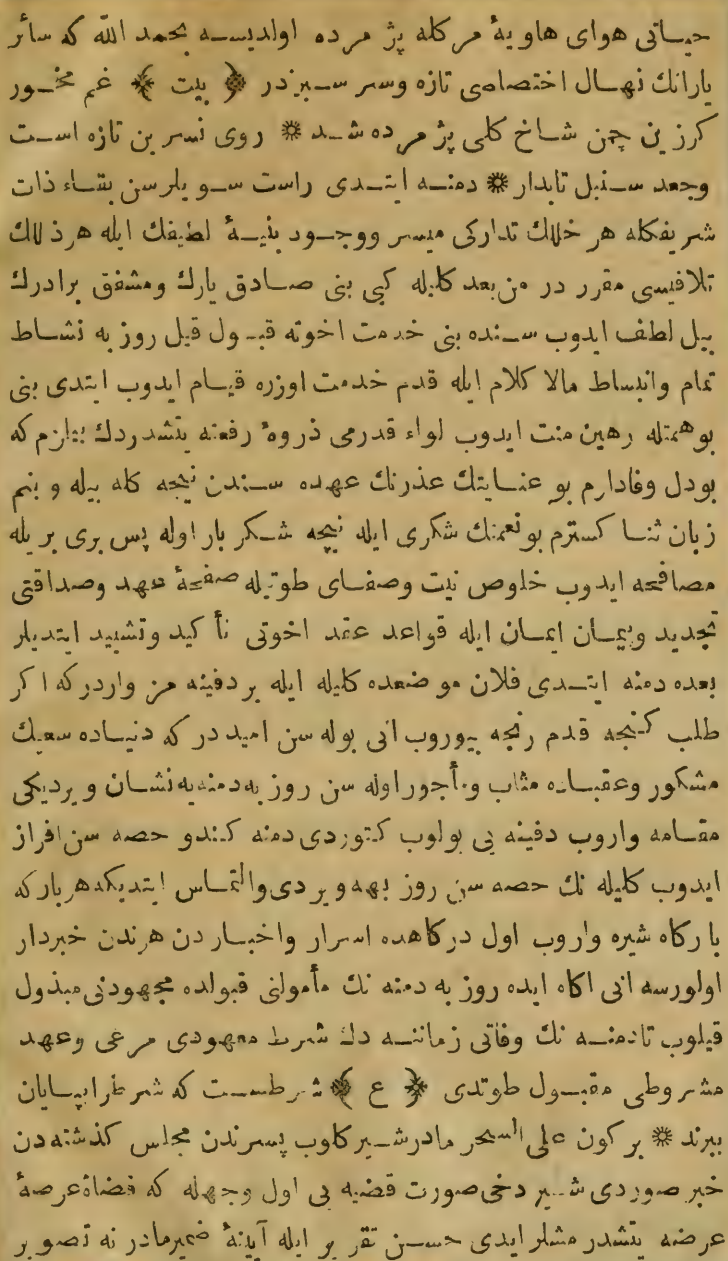 حیاتی هوای هاویهٔ مرکله پژمرده اولدیسه بحمد الله که سائر
یارانك نهال اختصاصی تازه وسر سبزدر ﴿ بیت ﴾ غم مخور
کرزین چمن شاخ کلی پژمرده شد ❋ روی نسرین تازه است
وجعد سنبل تابدار ❋ دمنه ایتدی راست سویلرسن بقاء ذات
شریفکله هر خللك تدارکی میسر ووجود بنیهٔ لطیفك ایله هر ذللك
تلافیسی مقرر در من بعد کلیله کبی بنی صادق یارك ومشفق برادرك
بیل لطف ایدوب سنده بنی خدمت اخوته قبول قیل روز به نشاط
تمام وانبساط مالا کلام ایله قدم خدمت اوزره قیام ایدوب ایتدی بنی
بوهمتله رهین منت ایدوب لواء قدرمی ذروهٔ رفعته یتشدردك بیلزم که
بودل وفادارم بو عنایتك عذرنك عهده سندن نیجه کله بیله و بنم
زبان ثنا کسترم بونعمتك شکری ایله نیجه شکر بار اوله پس بری بریله
مصافحه ایدوب خلوص نیت وصفای طویله صفحهٔ عهد وصداقتی
تجدید ویمان ایمان ایله قواعد عقد اخوتی تأکید وتشیید ایتدیلر
بعده دمنه ایتدی فلان موضعده کلیله ایله بر دفینه من واردر که اکر
طلب کنجه قدم رنجه بیوروب انی بوله سن امیددر که دنیاده سعیك
مشکور وعقباده مثاب ومأجور اوله سن روز به دمنه یه نشان ویردیکی
مقامه واروب دفینه یی بولوب کتوردی دمنه کندو حصه سن افراز
ایدوب کلیله نك حصه سن روز بهه ویردی والتماس ایتدیکه هر بارکه
بارکاه شیره واروب اول درکاهده اسرار واخباردن هرندن خبردار
اولورسه انی آکاه ایده روز به دمنه نك مأمولنی قبولده مجهودنی مبذول
قیلوب تا دمنه نك وفاتی زماننه دك شرط معهودی مرعی وعهد
مشروطی مقبول طوتدی ﴿ ع ﴾ شرطست که شرط را بپایان
ببرند ❋ بر کون علی السحر مادر شیر کلوب پسرندن مجلس کذشته دن
خبر صوردی شیر دخی صورت قضیه یی اول وجهله که قضاة عرصهٔ
عرضه یتشدرمشلر ایدی حسن تقریر ایله آیینهٔ ضمیر مادرنه تصویر